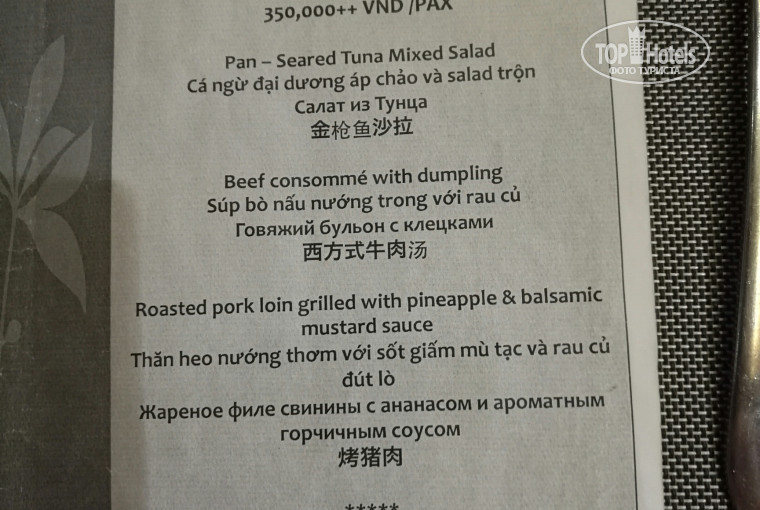 350,000++ VND /PAX
TOP Hotels
ФОТО ТУРИСТА
Pan – Seared Tuna Mixed Salad
Cá ngừ đại dương áp chảo và salad trộn
Салат из Тунца
金枪鱼沙拉
Beef consommé with dumpling
Súp bò nấu nướng trong với rau củ
Говяжий бульон с клецками
西方式牛肉汤
Roasted pork loin grilled with pineapple & balsamic
mustard sauce
Thăn heo nướng thơm với sốt giấm mù tạc và rau củ
đút lò
Жареное филе свинины с ананасом и ароматным
горчичным соусом
烤猪肉
*****